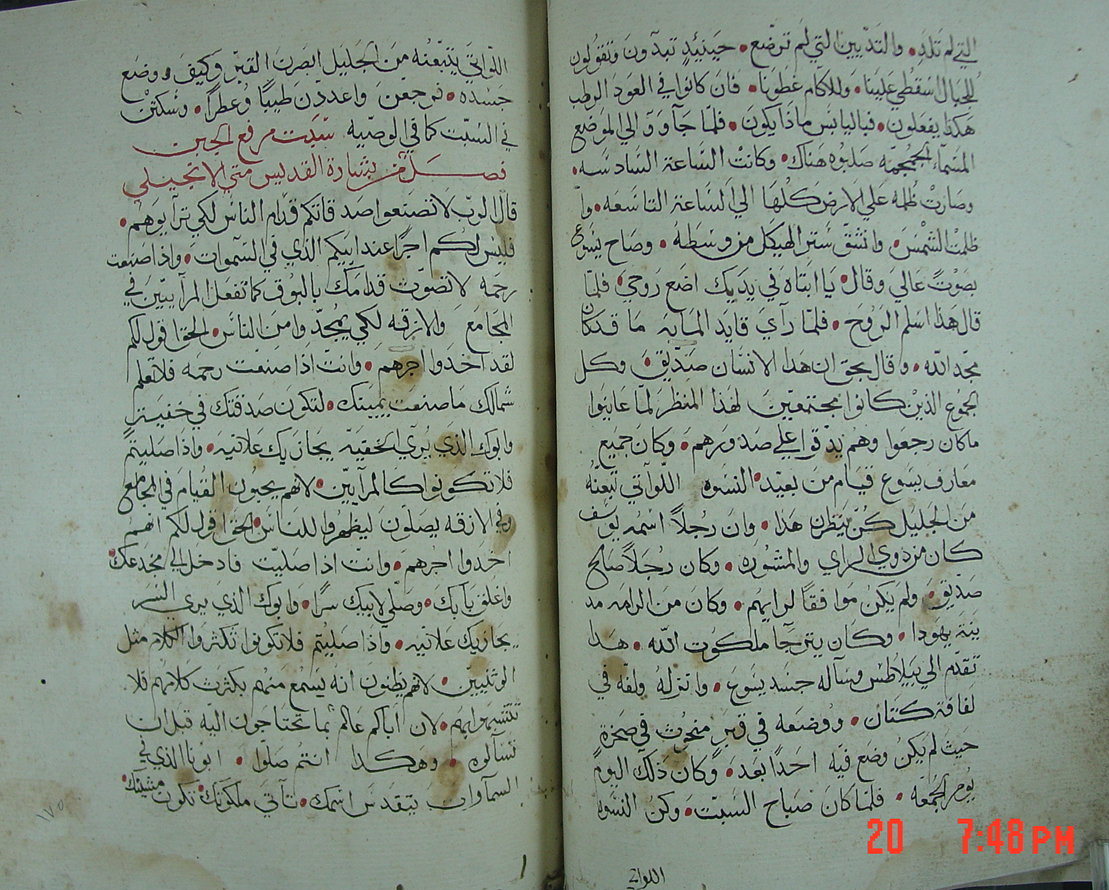 التي لم تلد • والثديين التي لم ترضع • حينيذٍ تبدون وتقولون
للجبال اسقطي علينا • وللاكام غطونا • فان كانوا في العود الرطب
هكذا يفعلون • فباليابس ماذا يكون • فلما جآوو الي الموضع
المسمآ الجمجمه صلبوه هناك • وكانت الساعة السادسه •
وصارت ظلمه علي الارض كلها الي الساعة التاسعه • وا
ظلمت الشمس • وانشق ستر الهيكل من وسطه • وصاح يسوع
بصوتٍ عالي وقال • يا ابتاه في يديك اضع روحي • فلما
قال هذا اسلم الروح • فلما رآي قايد المايه ما قد كان
مجد الله • وقال بحق ان هذا الانسان صديق • وكل
الجموع الذين كانوا مجتمعين لهذا المنظر لما عاينوا
ما كان رجعوا وهم يدقوا علي صدورهم • وكان جميع
معارف يسوع قيام من بعيد • النسوه اللوآتي تبعنه
من الجليل كن ينظرن هذا • وان رجلاً اسمه يوسف
كان من ذوي الراي والمشوره • وكان رجلاً صالح
صديق • ولم يكن موافقًا لرايهم • وكان من الرامه مد
ينة يهودا • وكان يترجآ ملكوت الله • هذا
تقدم الي بيلاطس وسآله جسد يسوع • وانزله ولفه في
لفافة كتان • ووضعه في قبرٍ منحوت في صخرةٍ
حيث لم يكن وضع فيه احدًا بعد • وكان ذلك اليوم
يوم الجمعه • فلما كان صباح السبت • وكن النسوه
اللواتي
اللواتي يتبعنه من الجليل ابصرن القبر وكيف ووضع
جسده • فرجعن واعددن طيبًا وعطرًا • وسكتن
في السبت كما في الوصيه سبت مرفع الجبن
فصل من بشارة القديس متي الانجيلي
قال الرب لا تصنعوا صدقاتكم قدام الناس لكي ترآيوهم •
فليس لكم اجرًا عند ابيكم الذي في السموات • واذا صنعت
رحمه لا تصوت قدامك بالبوق كما تفعل المرآييين في
المجامع والازقه لكي يمجدوا من الناس • الحق اقول لكم
لقد اخدوا اجرهم • وانت اذا صنعت رحمه فلا تعلم
شمالك ما صنعت يمينك • لتكون صدقتك في خفيةٍ
وابوك الذي يري الخفيه يجازيك علانيه • واذا صليتم
فلا تكونوا كالمرآيين • لانهم يحبون القيام في المجامع
وفي الازقه يصلون ليظهروا للناس • الحق اقول لكم انهم
اخدوا اجرهم • وانت اذا صليت فادخل الي مخدعك •
واغلق بابك • وصلي لابيك سرًا • وابوك الذي يري السر
يجازيك علانيه • واذا صليتم فلا تكونوا تكثروا الكلام مثل
الوثنيين • لانهم يظنون انه يسمع منهم بكثرت كلامهم فلا
تتشبهوا بهم • لان اباكم عالم بما تحتاجون اليه قبل ان
تسآلوه • وهكذا انتم صلوا • ابونا الذي في
السمآوات يتقدس اسمك • تآتي ملكوتك • تكون مشيتك •
١٧٥
20 7:48 PM